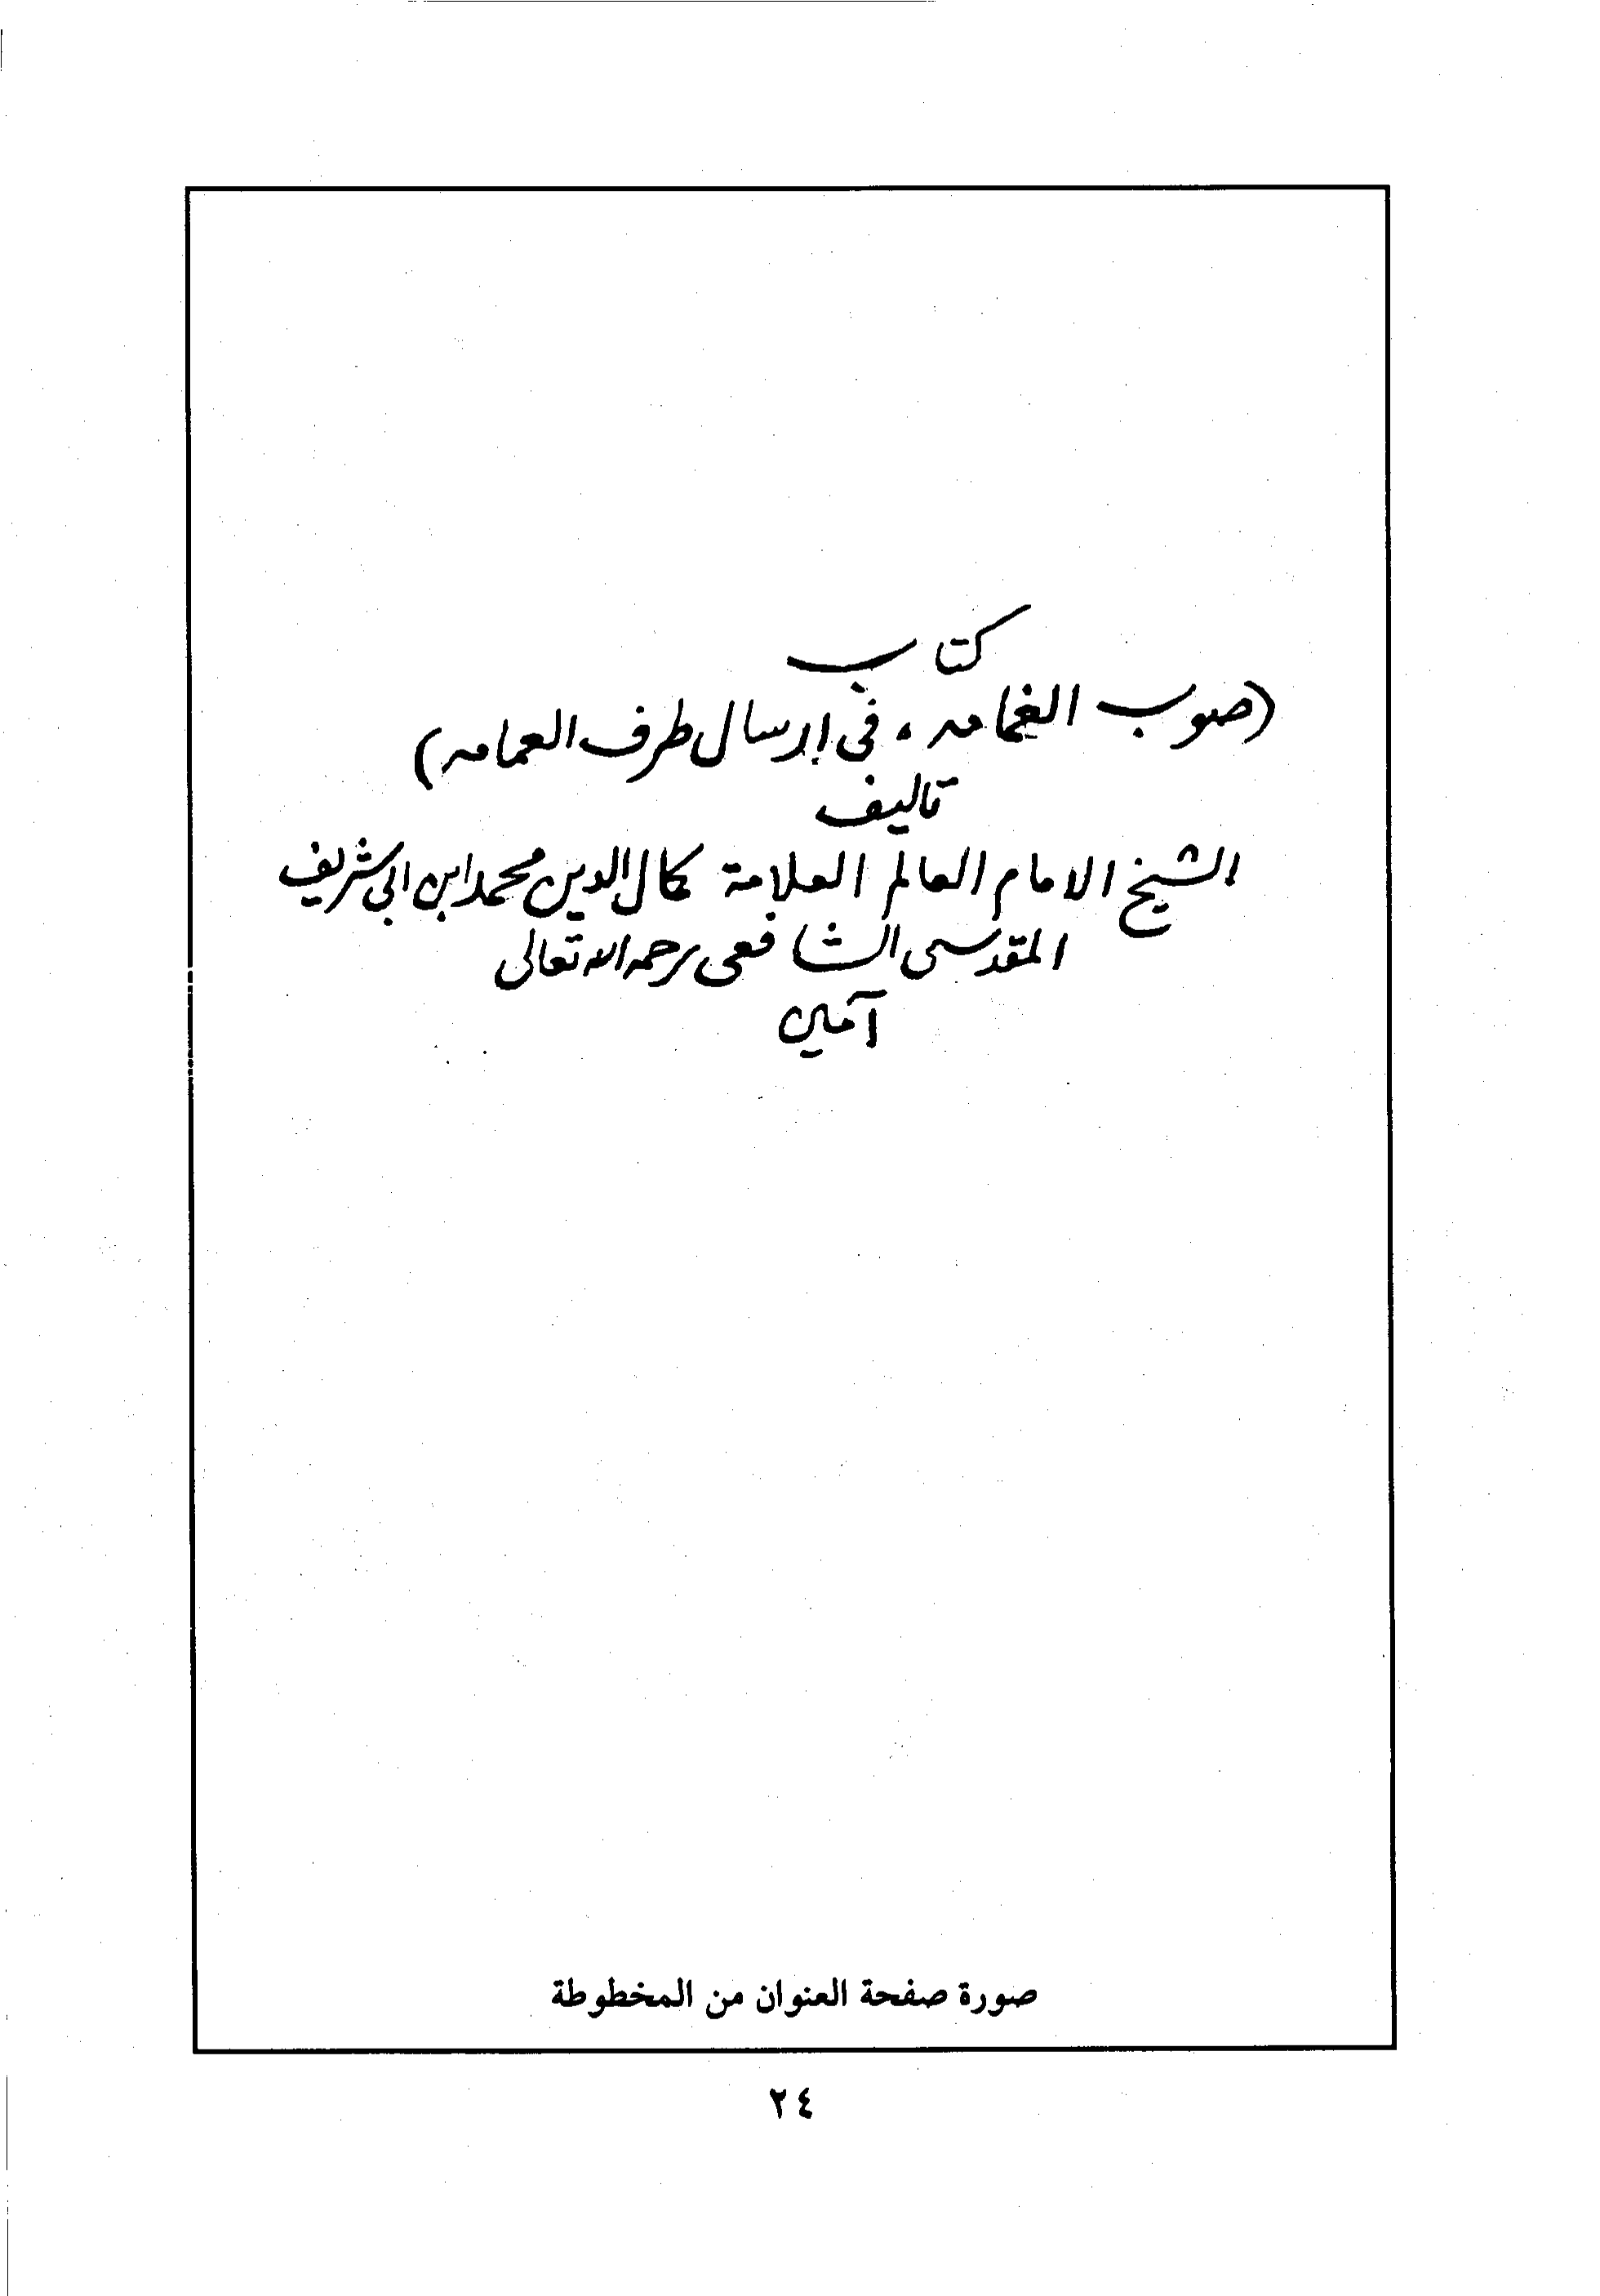 كتاب
(صوب الغمامه، في إرسال طرف العمامه)
تاليف
الشيخ الامام العالم العلامة كمال الدين محمد ابن ابي شريف
المقدسي الشافعي رحمه الله تعالى
آمين
صورة صفحة العنوان من المخطوطة
٢٤